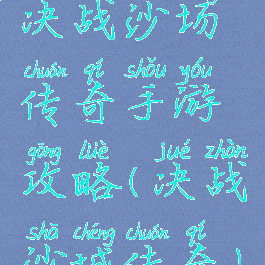 决战沙场
chuán qí shǒu yóu
传奇手游
gōng lüè jué zhàn
攻略(决战
shā chéng chuán qí
沙城传奇)